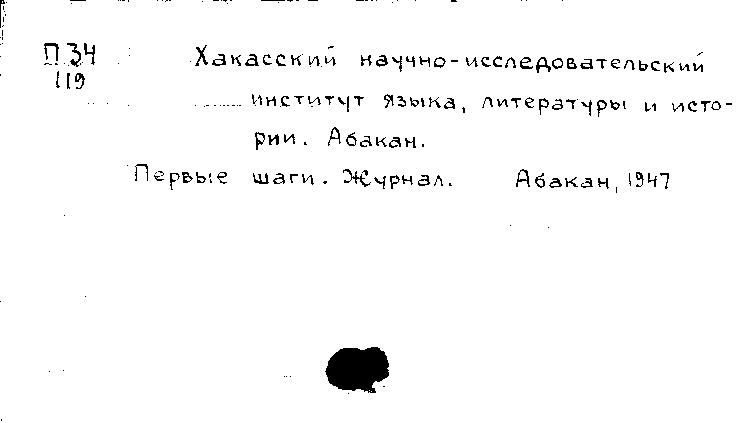 П 34 Хакасский научно-исследовательский
119
институт языка, литературы и исто-
рии. Абакан.
Первые шаги. Журнал. Абакан, 1947